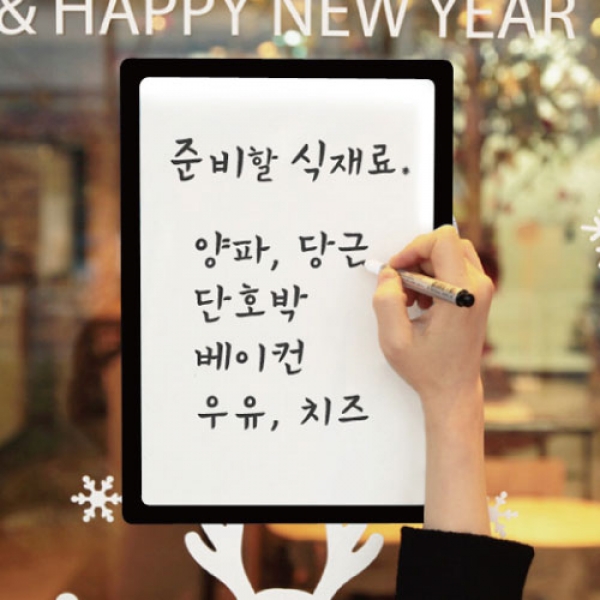 & HAPPY NEW YEAR
준비할 식재료.
양파, 당근
단호박
베이컨
우유, 치즈